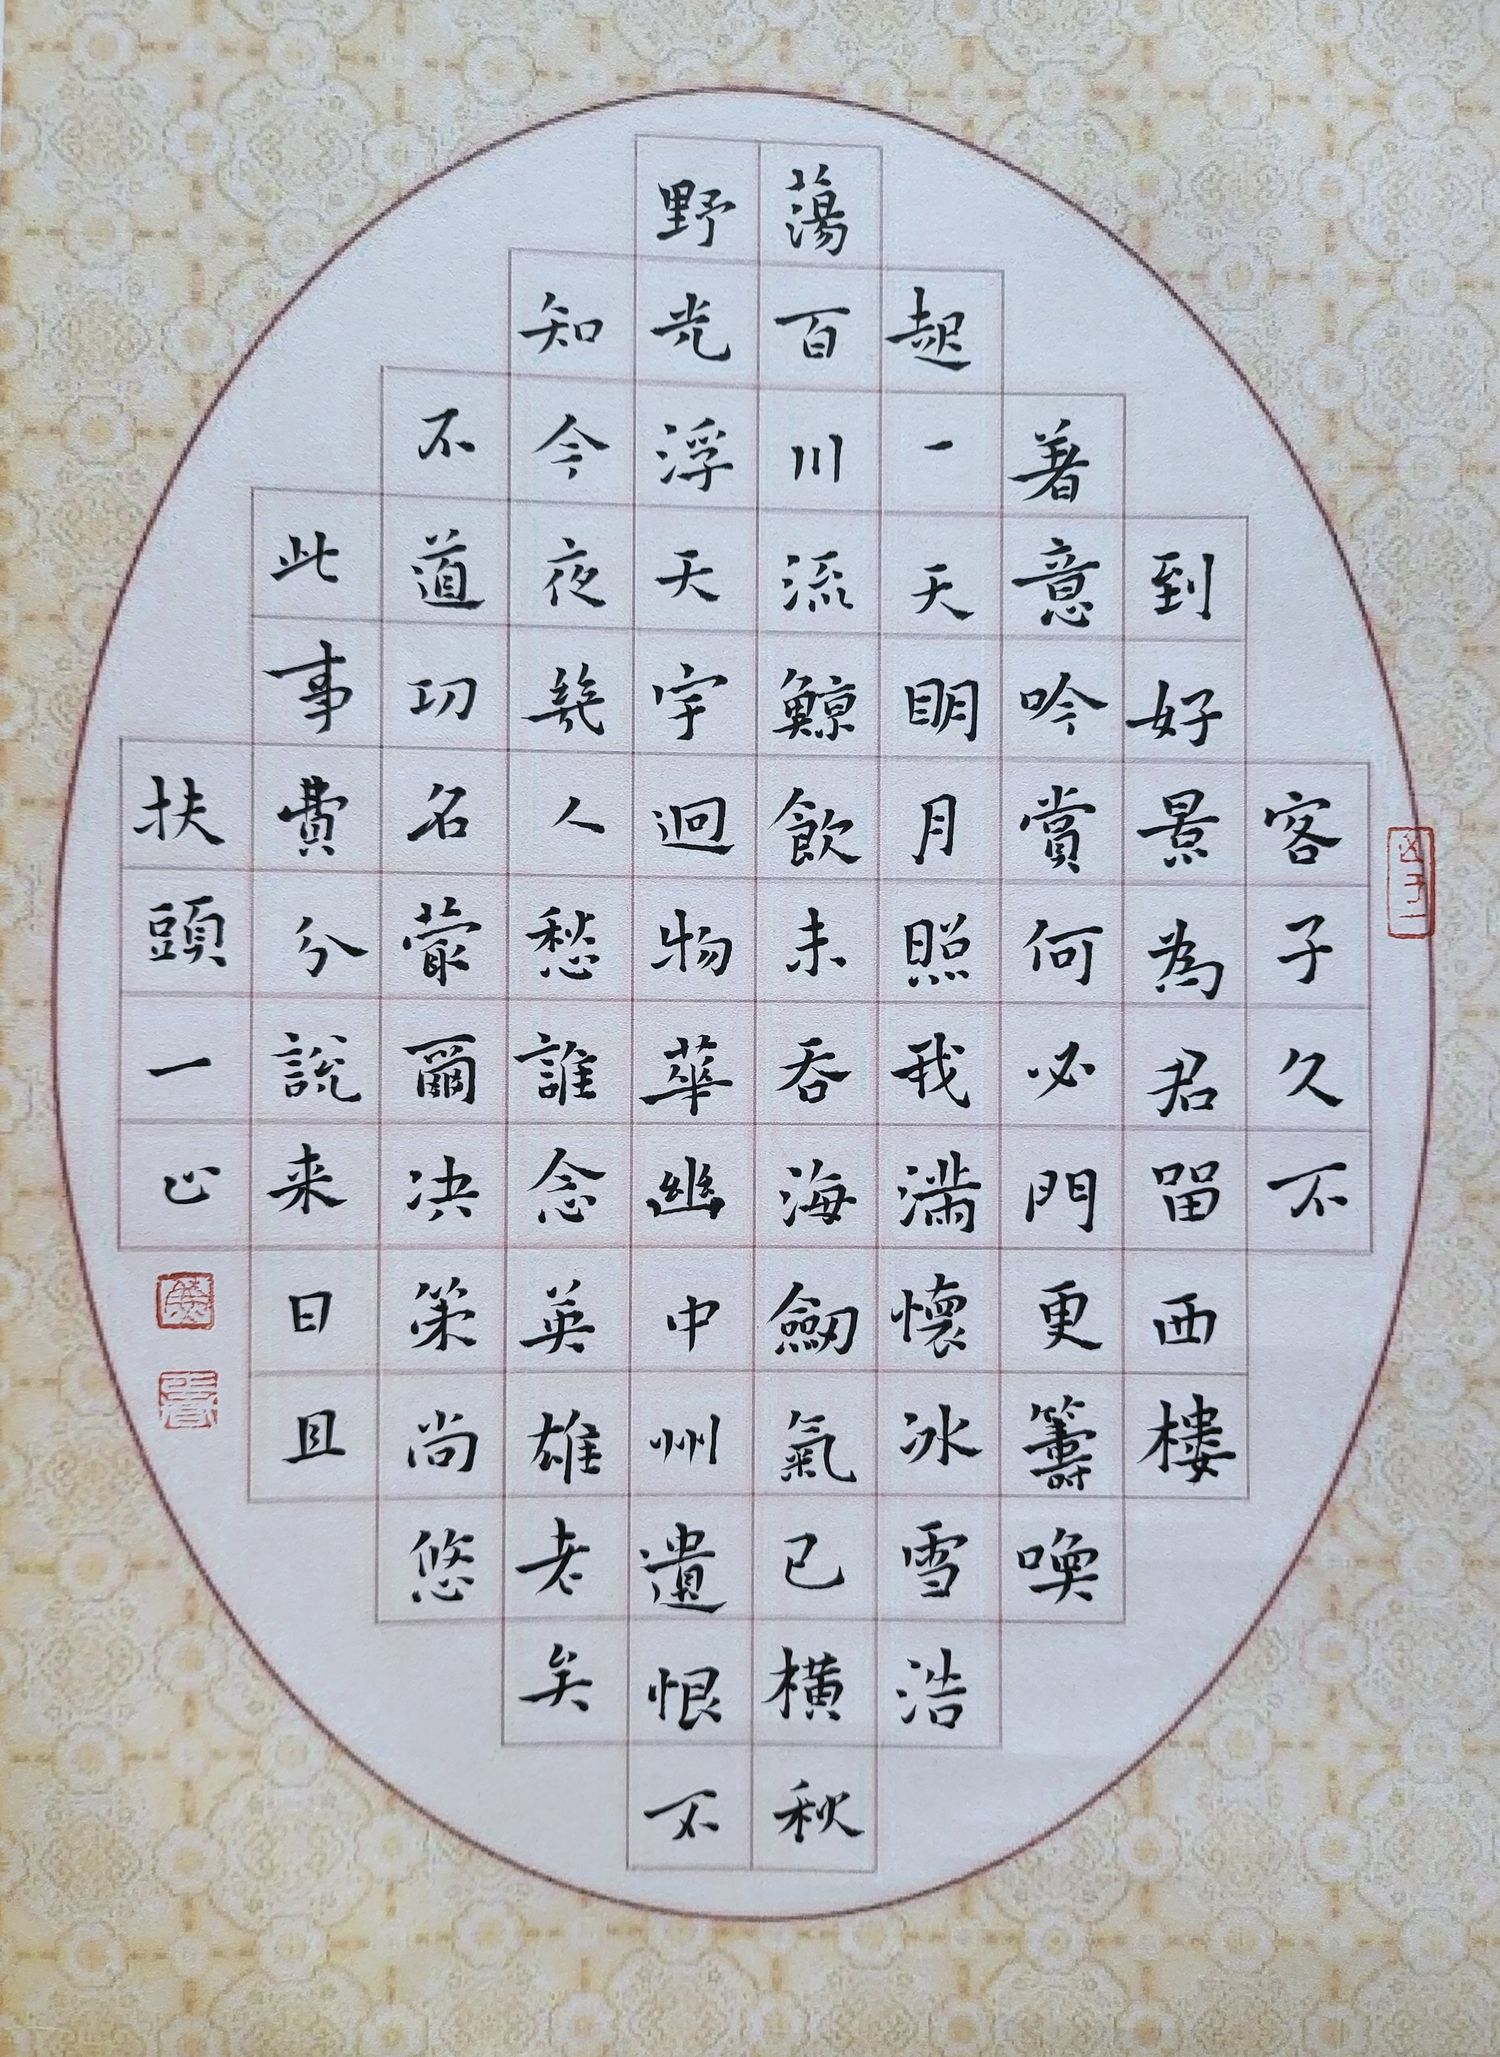 客子久不
到好景為君留西樓
著意吟賞何必門更籌喚
起一天明月照我滿懷冰雪浩
蕩百川流鯨飲未吞海劔氣已橫秋
野光浮天宇迥物華幽中州遺恨不
知今夜幾人愁誰念英雄老矣
不道功名蕞爾決策尚悠
此事費分說来日且
扶頭一心